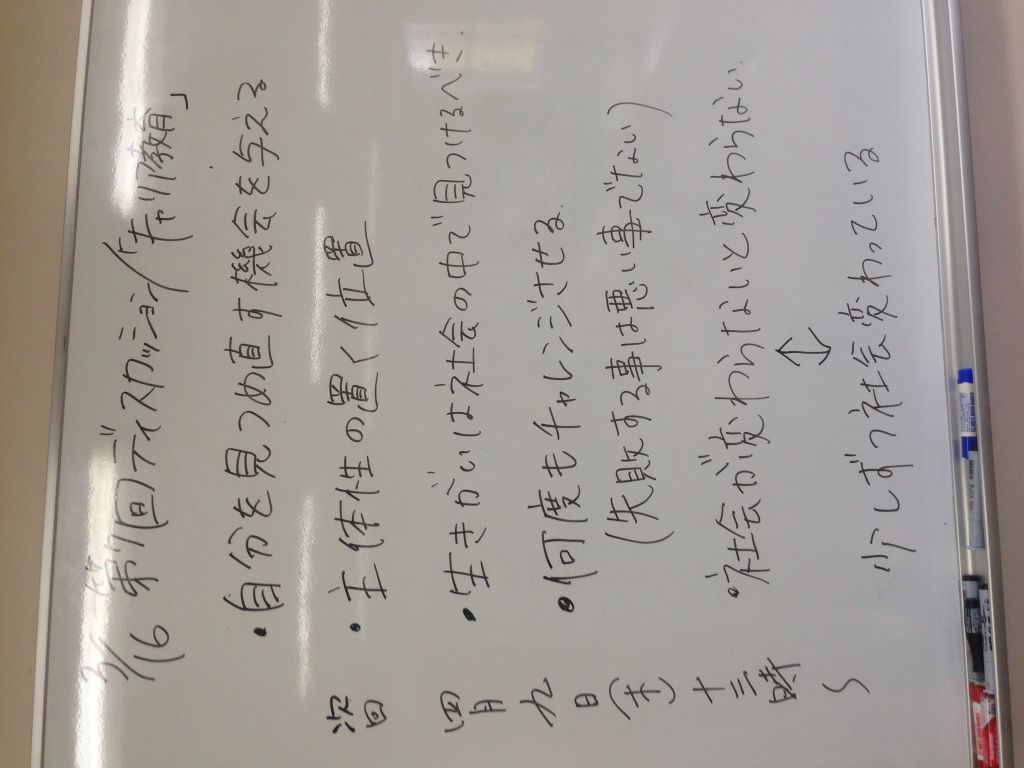 3/16 第7回ディスカッション「キャリア教育」
・自分を見つめ直す機会を与える
・主体性の置く位置
・生きがいは社会の中で見つけるべき.
・何度もチャレンジさせる.
(失敗する事は悪い事でない)
・社会が変わらないと変わらない.
↕
少しずつ社会変わっている
次回
四月九日(木)十三時〜